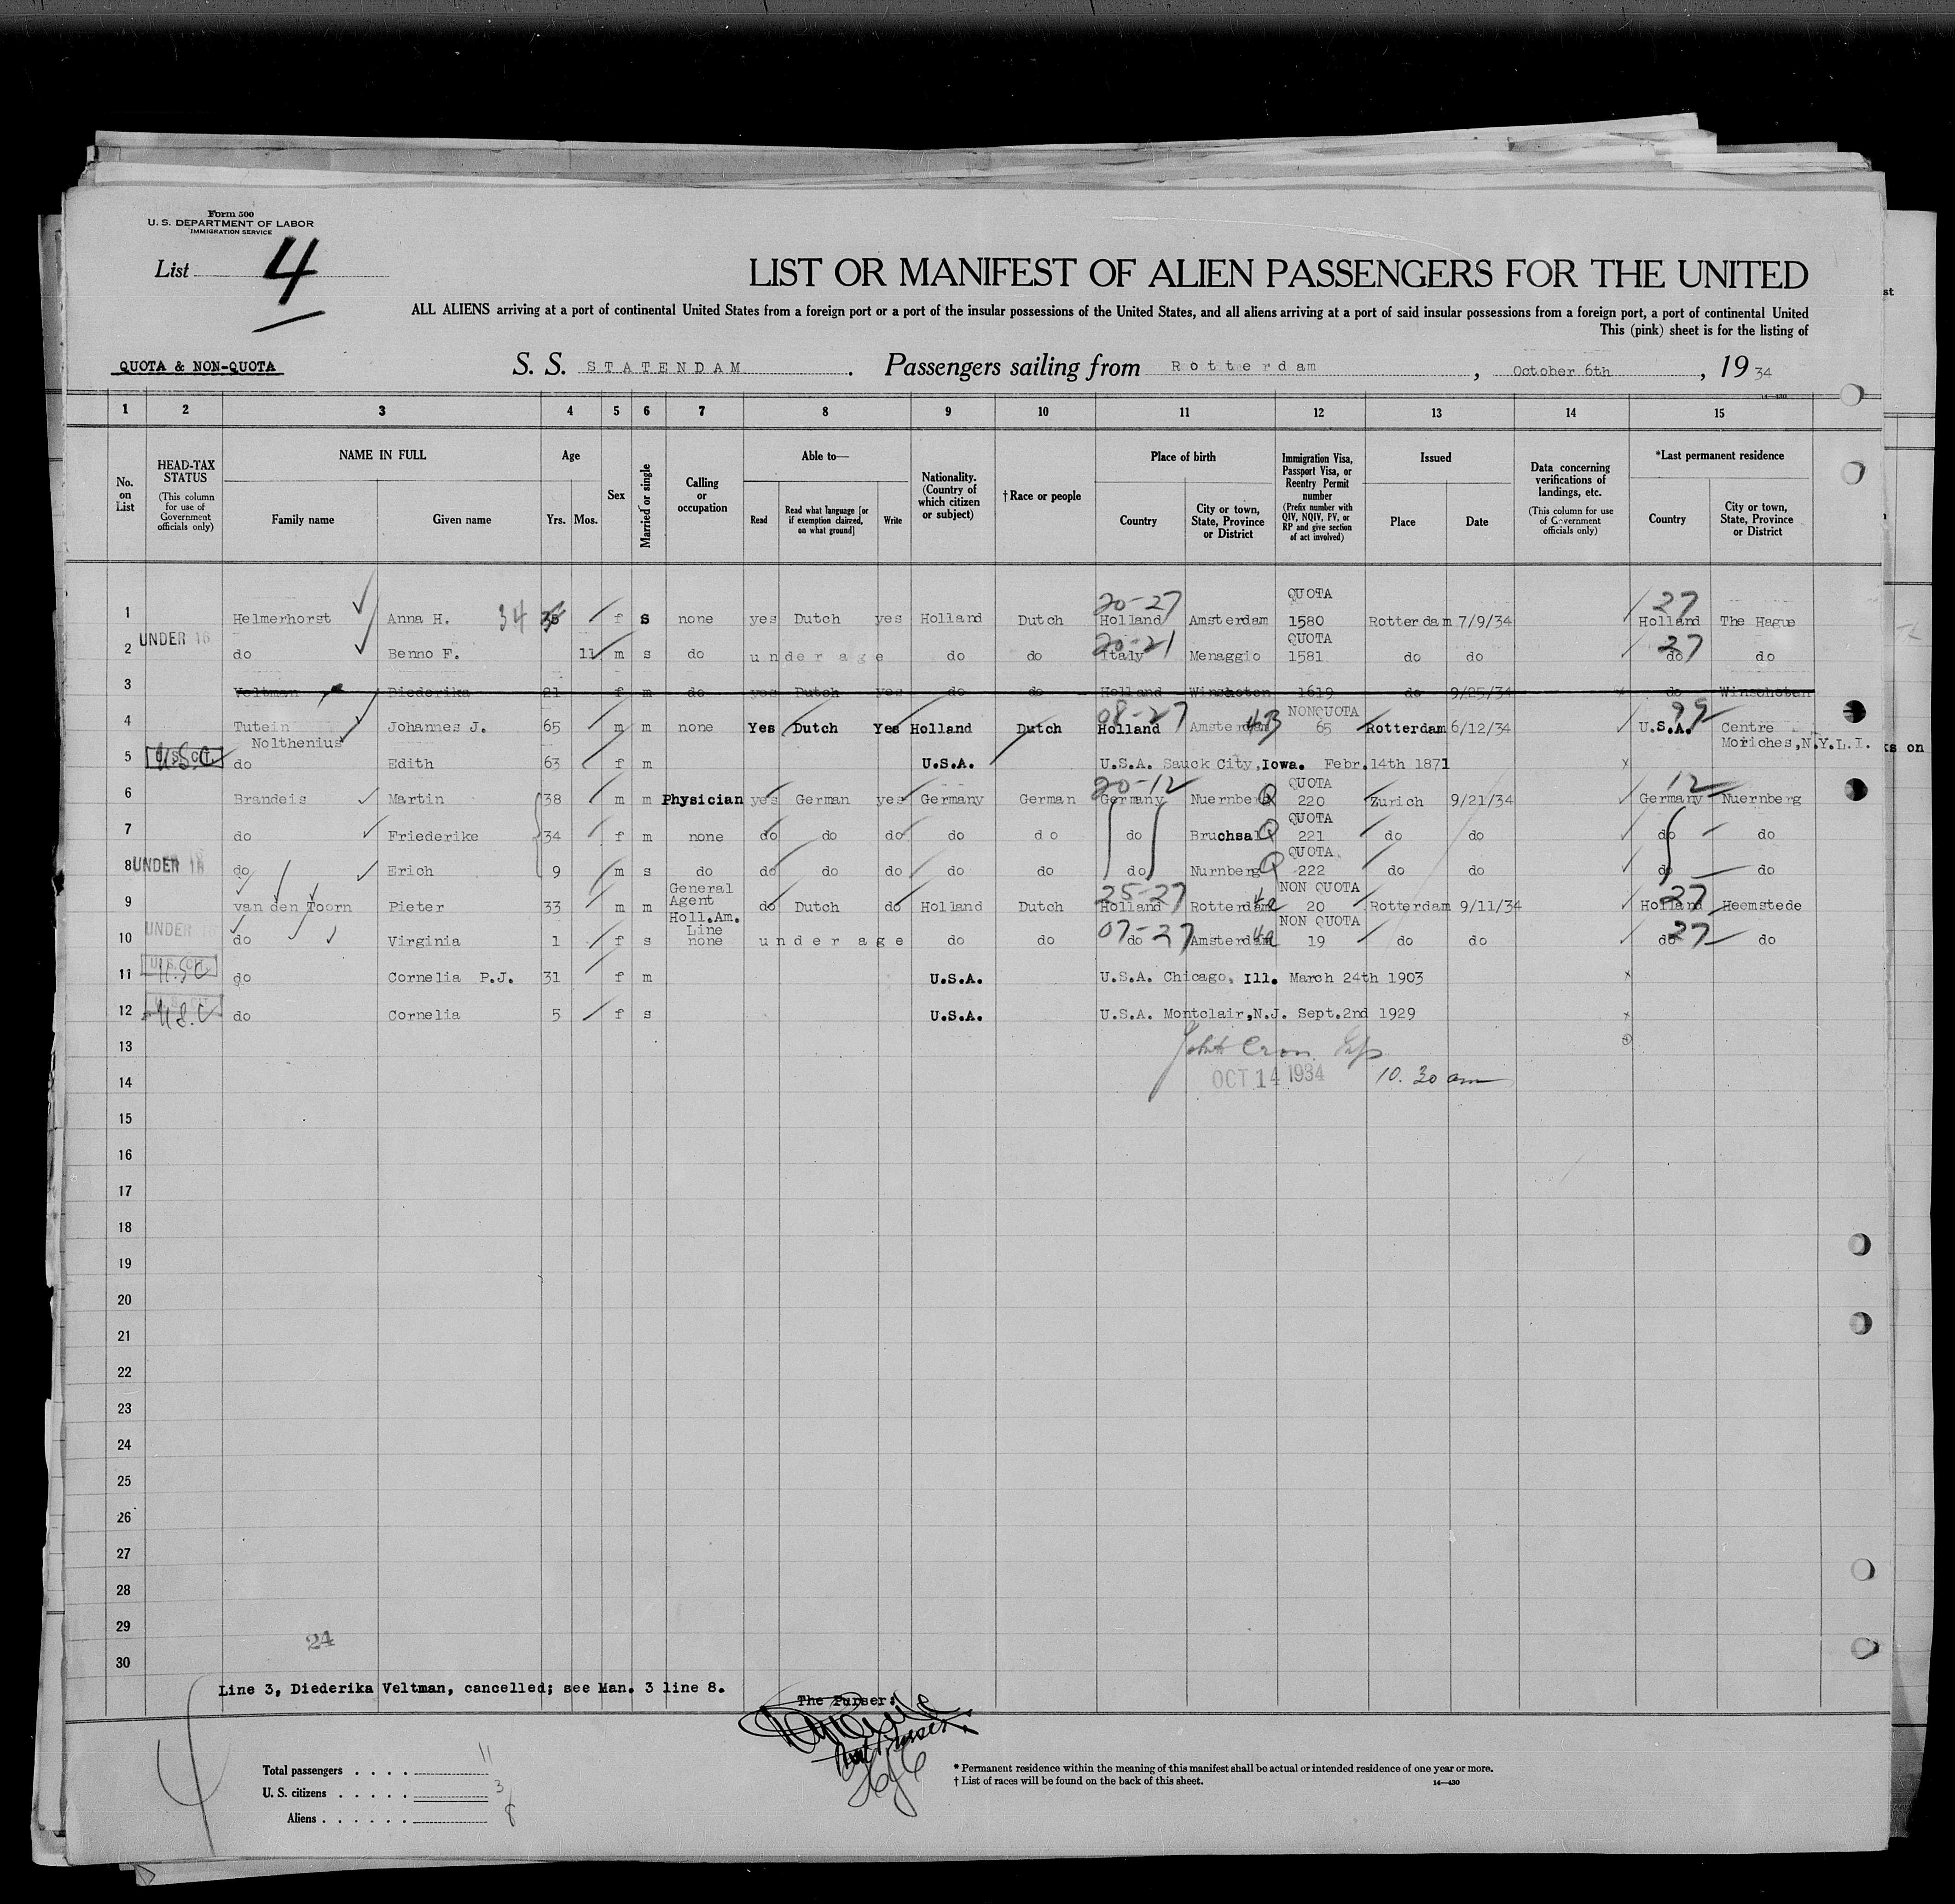 Form 500
U. S. DEPARTMENT OF LABOR
IMMIGRATION SERVICE
List 4
LIST OR MANIFEST OF ALIEN PASSENGERS FOR THE UNITED
ALL ALIENS arriving at a port of continental United States from a foreign port or a port of the insular possessions of the United States, and all aliens arriving at a port of said insular possessions from a foreign port, a port of continental United
This (pink) sheet is for the listing of
QUOTA & NON-QUOTA S. S. STATENDAM. Passengers sailing from Rotterdam, October 6th, 19 34
1 2 3 4 5 6 7 8 9 10 11 12 13 14 15
No. on List
HEAD-TAX STATUS (This column for use of Government officials only)
NAME IN FULL
Family name Given name
Age
Yrs. Mos.
Sex
Married or single
Calling or occupation
Able to—
Read
Read what language [or if exemption claimed, on what ground]
Write
Nationality. (Country of which citizen or subject)
†Race or people
Place of birth
Country
City or town, State, Province or District
Immigration Visa, Passport Visa, or Reentry Permit number (Prefix number with QIV, NQIV, PV, or RP and give section of act involved)
Issued
Place Date
Data concerning verifications of landings, etc. (This column for use of Government officials only)
*Last permanent residence
Country
City or town, State, Province or District
20-27 QUOTA 27
1 Helmerhorst Anna H. 34 f s none yes Dutch yes Holland Dutch Holland Amsterdam 1580 Rotterdam 7/9/34 Holland The Hague
UNDER 16 20-21 QUOTA 27
2 do Benno F. 11 m s do under age do do Italy Menaggio 1581 do do do do
3 Veltman Diederika 21 f m do yes Dutch yes do do Holland Winschoten 1619 do 9/25/34 do Winschoten
08-27 NONQUOTA 99
4 Tutein Nolthenius Johannes J. 65 m m none Yes Dutch Yes Holland Dutch Holland Amsterdam 65 Rotterdam 6/12/34 U.S.A. Centre Moriches,N.Y.L.I.
5 U.S. CIT. USC do Edith 63 f m U.S.A. U.S.A. Sauck City,Iowa. Febr.14th 1871 x
20-12 QUOTA 12
6 Brandeis Martin 38 m m Physician yes German yes Germany German Germany Nuernberg Q 220 Zurich 9/21/34 Germany Nuernberg
QUOTA
7 do Friederike 34 f m none do do do do do do Bruchsal Q 221 do do do do
QUOTA
8 UNDER 16 do Erich 9 m s do do do do do do do Nurnberg Q 222 do do do do
25-27 NON QUOTA 27
9 van den Toorn Pieter 33 m m General Agent Holl.Am. Line do Dutch do Holland Dutch Holland Rotterdam 20 Rotterdam 9/11/34 Holland Heemstede
UNDER 16 07-27 NON QUOTA 27
10 do Virginia 1 f s none under age do do do Amsterdam 19 do do do do
11 U.S. CIT. USC do Cornelia P.J. 31 f m U.S.A. U.S.A. Chicago, Ill. March 24th 1903 x
12 U.S. CIT. USC do Cornelia 5 f s U.S.A. U.S.A. Montclair,N.J. Sept.2nd 1929 x
13
14 OCT 14 1934 10.30 am
15
16
17
18
19
20
21
22
23
24
25
26
27
28
29
24
30
Line 3, Diederika Veltman, cancelled; see Man. 3 line 8.
The Purser:
Total passengers . . . . 11
U. S. citizens . . . . . 3
Aliens . . . . . . 8
* Permanent residence within the meaning of this manifest shall be actual or intended residence of one year or more.
† List of races will be found on the back of this sheet. 14—430